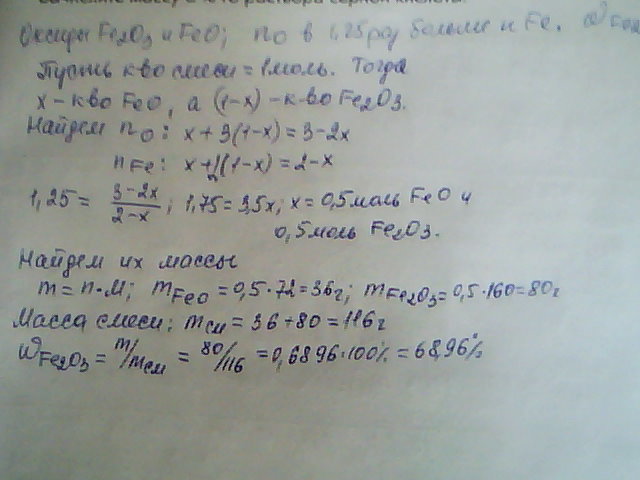 Оксиды Fe₂O₃ и FeO; nO в 1,25 раз больше n Fe. ω Fe₂O₃
Пусть к-во смеси = 1 моль. Тогда
x – к-во FeO, а (1-x) – к-во Fe₂O₃.
Найдем nO: x + 3(1-x) = 3-2x
nFe: x + 2(1-x) = 2-x
1,25 = 3-2x/2-x; 1,75 = 3,5x; x = 0,5 моль FeO и
0,5 моль Fe₂O₃.
Найдем их массы
m = n·M; mFeO = 0,5·72 = 36г; mFe₂O₃ = 0,5·160 = 80г
Масса смеси: mсм = 36 + 80 = 116г
ωFe₂O₃ = m/mсм = 80/116 = 0,6896·100% = 68,96%